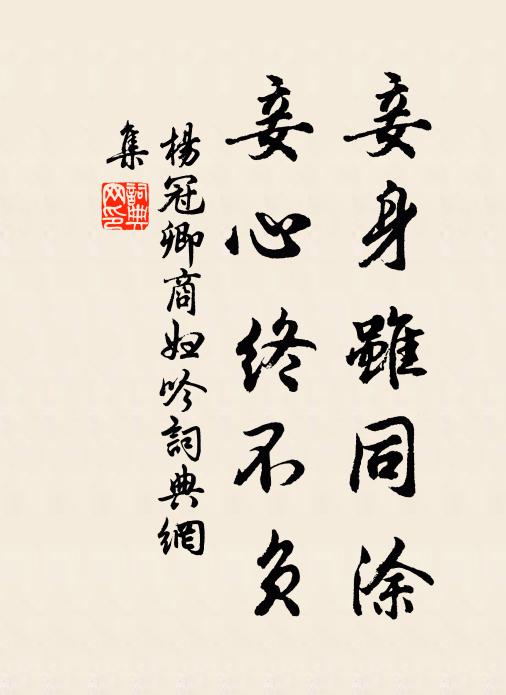 妾身雖同涂
妾心終不負
楊冠卿商婦吟詞典網
集
詞典网印